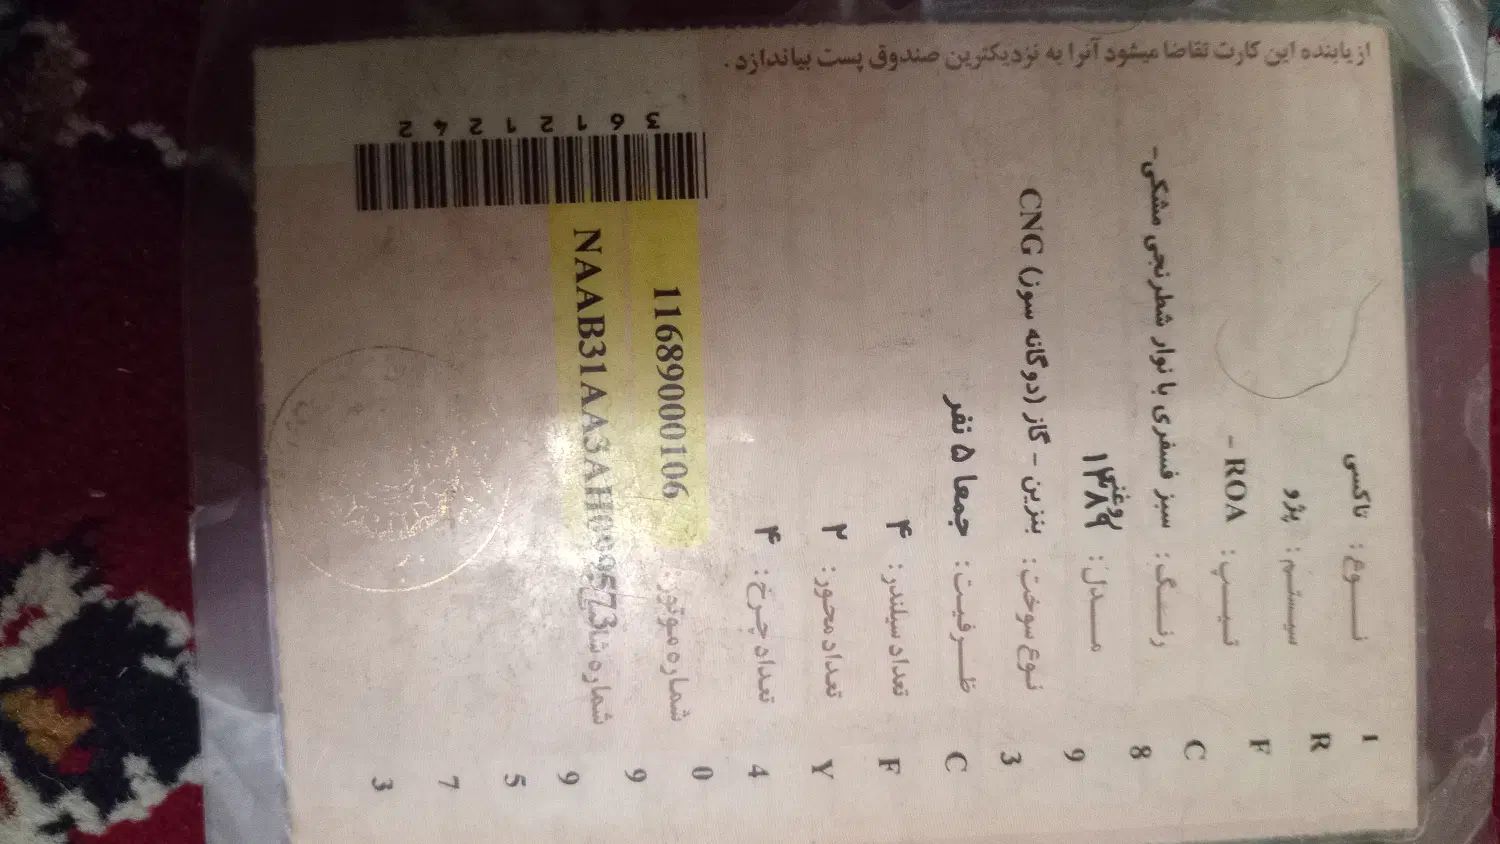 از یابنده این کارت تقاضا میشود آنرا به نزدیکترین صندوق پست بیاندازد .
3 6 1 2 1 2 4 2
نوع : تاکسی
سیستم : پژو
تیپ : ROA -
رنگ : سبز فسفری با نوار شطرنجی مشکی -
روغنی
مدل : ۱۳۸۹
نوع سوخت : بنزین - گاز (دوگانه سوز) CNG
ظرفیت : جمعا ۵ نفر
تعداد سیلندر : ۴
تعداد محور : ۲
تعداد چرخ : ۴
شماره موتور : 11689000106
شماره شاسی NAAB31AA3AH099573
I R F C 8 9 3 C F Y 4 0 9 9 5 7 3